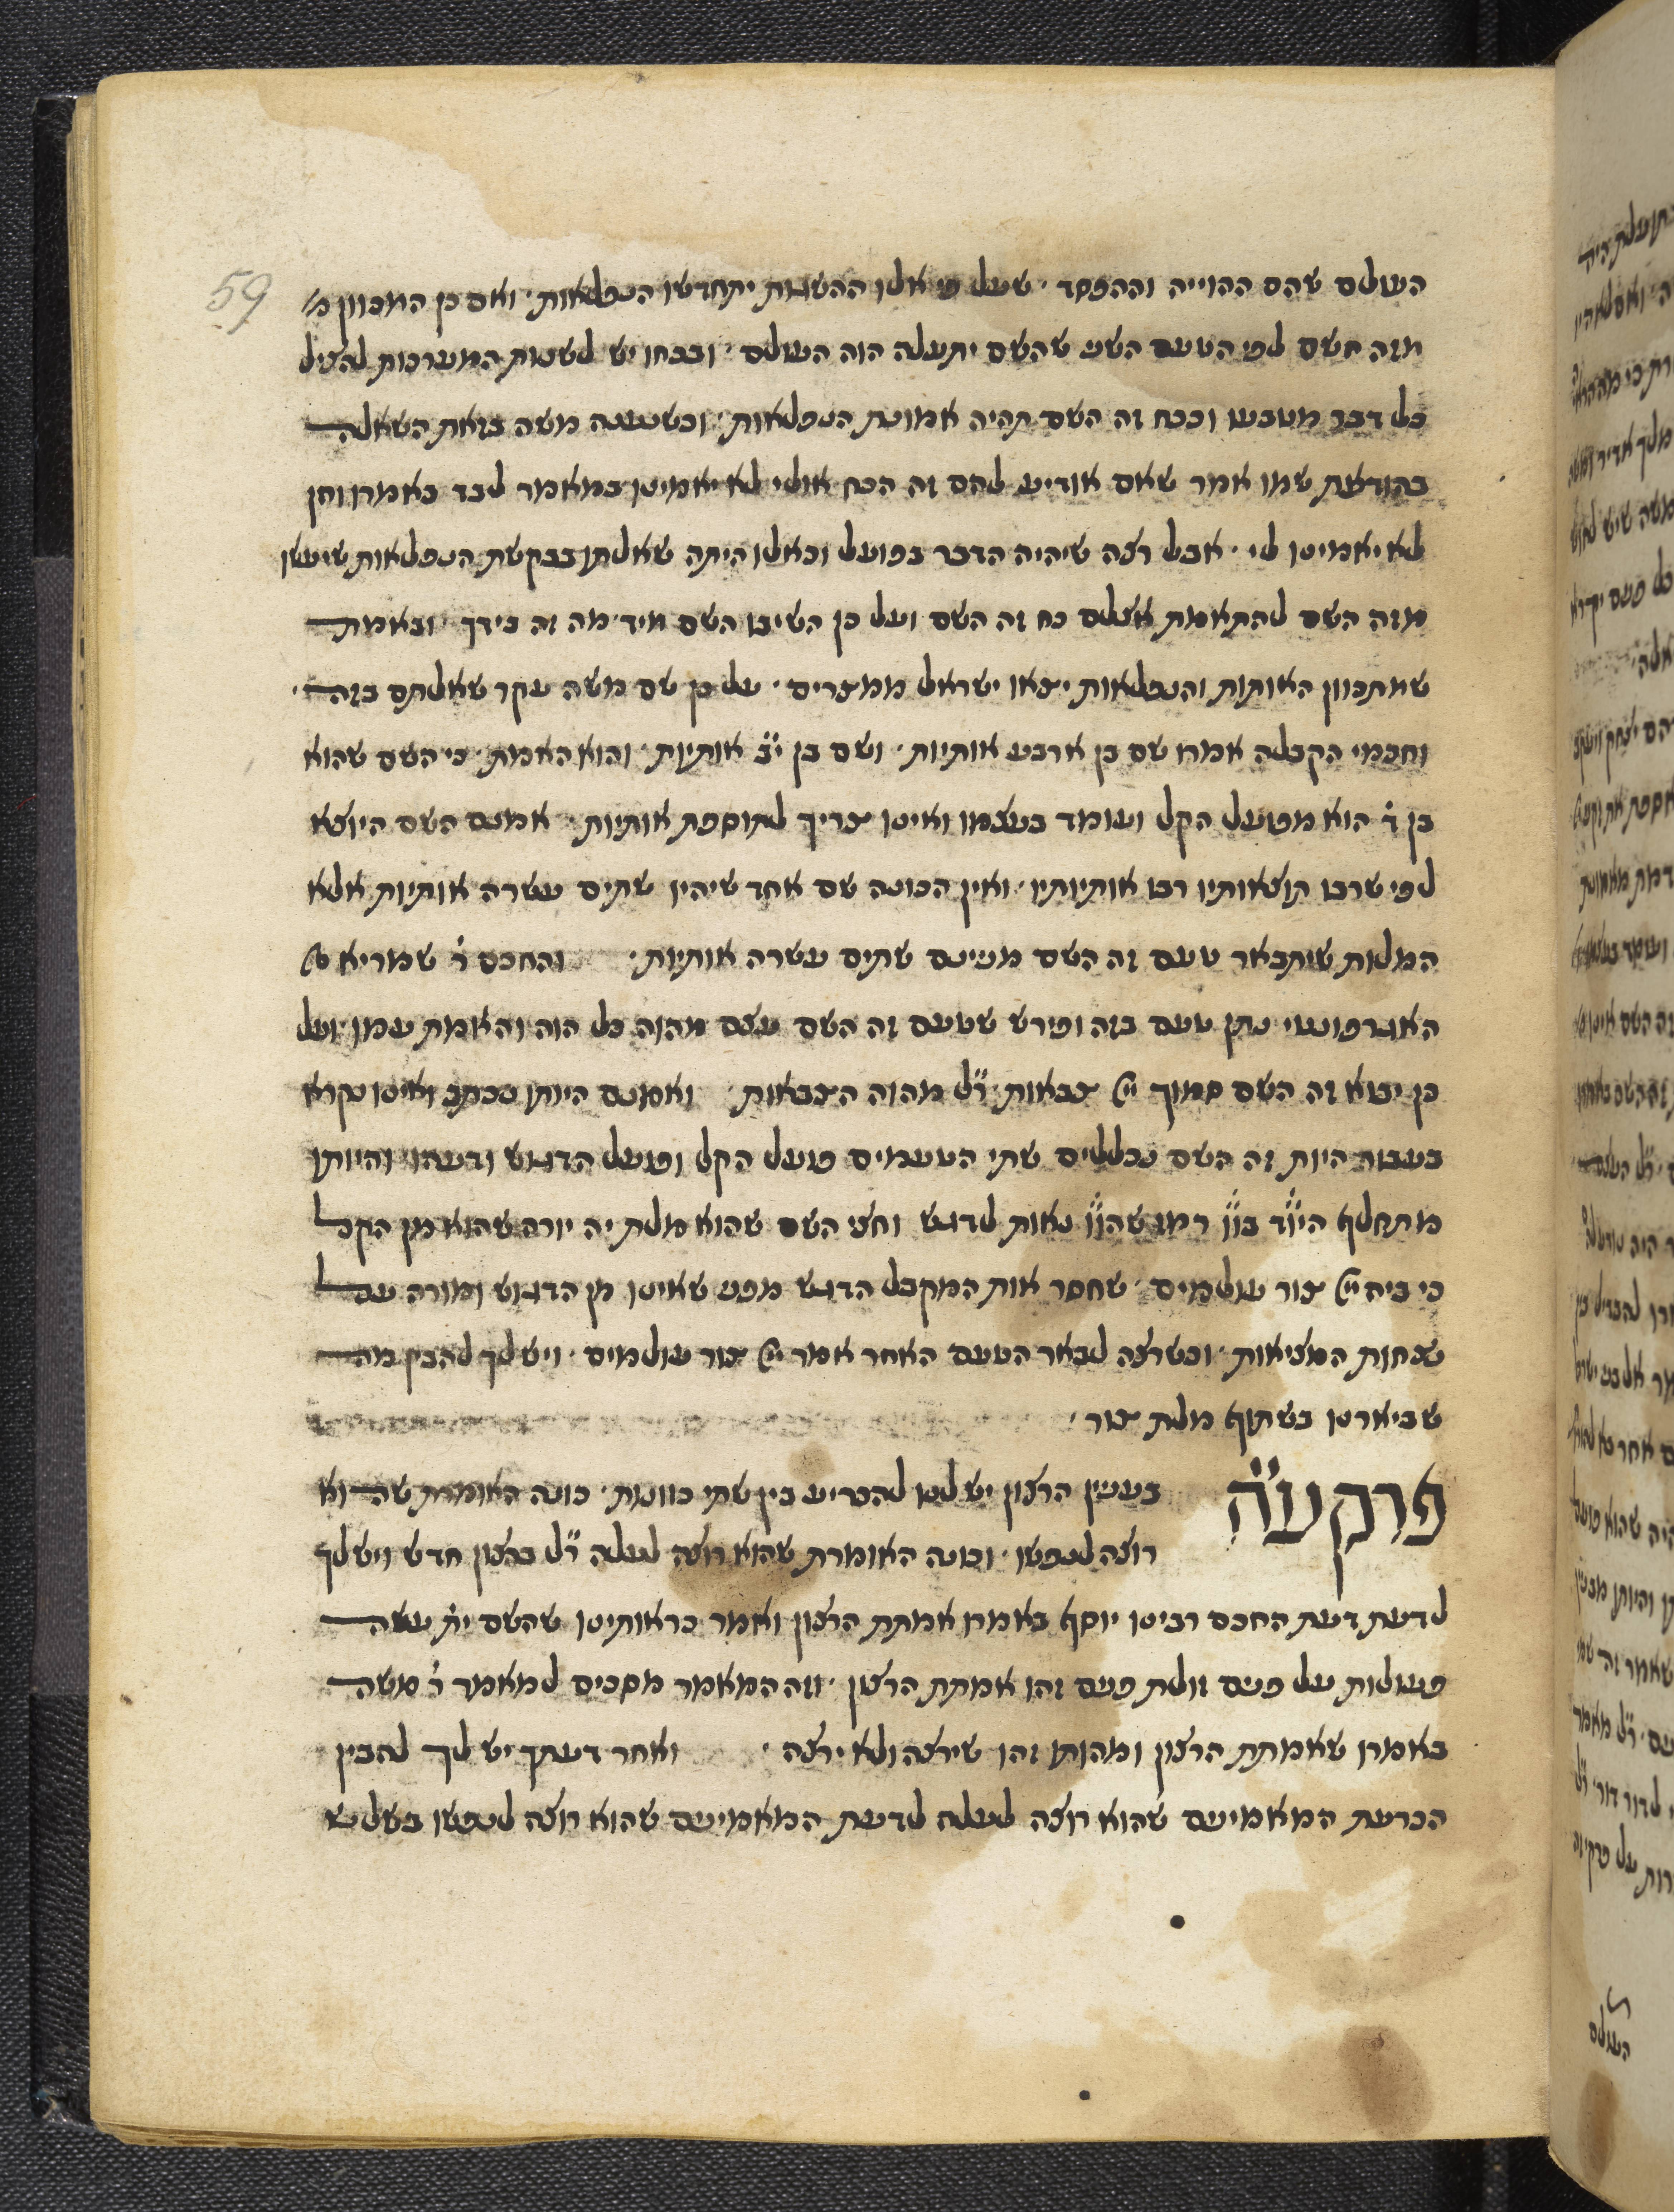 59
העולם שהם ההוייה וההפסד · שעל פי אלו ההשגות יתחדשו הנפלאות · ואם כן המכוון
מזה השם לפי הטעם השני שהשם יתעלה הוה העולם · ובכחו יש לשנות המערכות להציל
כל דבר מטבעו וככח זה השם תהיה אמונת הנפלאות · וכשנענה משה בזאת השאלה
בהודעת שמו אמר שאם אודיע להם זה הכח אולי לא יאמינו במאמר לבד באמרו והן
לא יאמינו לי · אבל רצה שיהיה הדבר בפועל וכאלו היתה שאלתו בבקשת הנפלאות שיעשו
מזה השם להתאמת אצלם כח זה השם ועל כן השיבו השם מיד מה זה בידך · ובאמת
שמתכוון האותות והנפלאות יצאו ישראל ממצרים · על כן שם משה עקר שאלתם בזה ·
וחכמי הקבלה אמרו שם בן ארבע אותיות · ושם בן י״ב אותיות · והוא האמת · כי השם שהוא
בן ד׳ הוא מפועל הקל ועומד בעצמו ואינו צריך לתוספת אותיות · אמנם השם היוצא
לפי שרבו תוצאותיו רבו אותיותיו · ואין הכונה שם אחד שיהיו שתים עשרה אותיות אלא
המלות שיתבאר טעם זה השם מנינם שתים עשרה אותיות · והחכם ר׳ שמריא
האגרפונטי נתן טעם בזה ופירש שטעם זה השם עצם מהוה כל הוה והאמת עמו · ועל
כן יבוא זה השם סמוך יי׳ צבאות · ר״ל מהוה הצבאות · ואמנם היותו נכתב ואינו נקרא
בעבור היות זה השם נכללים שתי הטעמים פועל הקל ופועל הדגוש ובעהו · והיותו
מתחלף היו״ד בו״ו רמז שהו״ו נאות לדגש וחצי השם שהוא מלת יה יורה שהוא מן הקל
כי ביה יי׳ צור עולמים · שחסר אות המקבל הדגש מפני שאינו מן הדגוש ומורה על
נצחות המציאות · וכשרצה לבאר הטעם האחר אמר יי׳ צור עולמים · ויש לך להבין מה
שביארנו בשתוף מלת צור ·
פרק ע״ה
בענין הרצון יש לנו להכריע בין שתי כוונות · כונה האומרת שהוא
רוצה לנפשו · וכונה האומרת שהוא רוצה לעלה ר״ל ברצון חדש ויש לך
לדעת דעת החכם רבינו יוסף באמרו אמתת הרצון ואמר כראותינו שהשם ית׳ עשה
פעולות על פנים זולת פנים זהו אמתת הרצון · וזה המאמר מסכים למאמר ר׳ משה
באמרו שאמתת הרצון ומהותו זהו שירצה ולא ירצה · ואחר דעתך יש לך להבין
הכרעת המאמינים שהוא רוצה לעלה לדעת המאמינים שהוא רוצה לנפשו בשלש